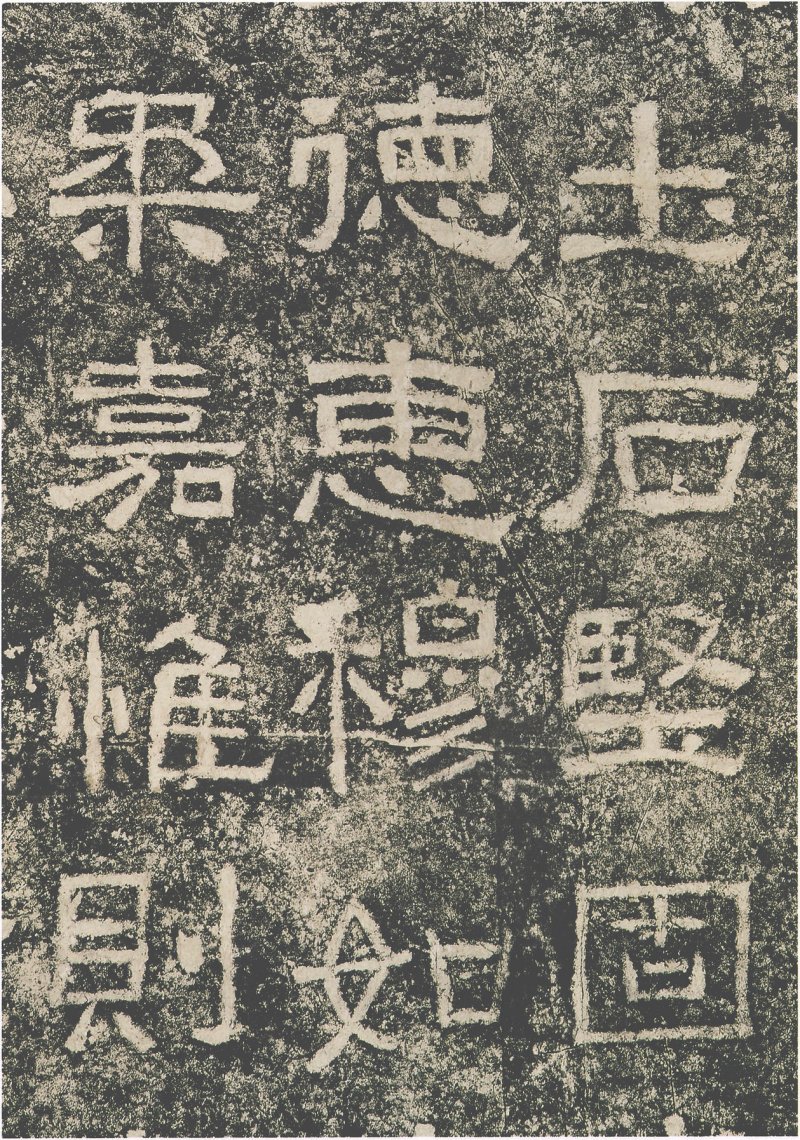 土石堅固
德惠穆如
柔嘉惟則